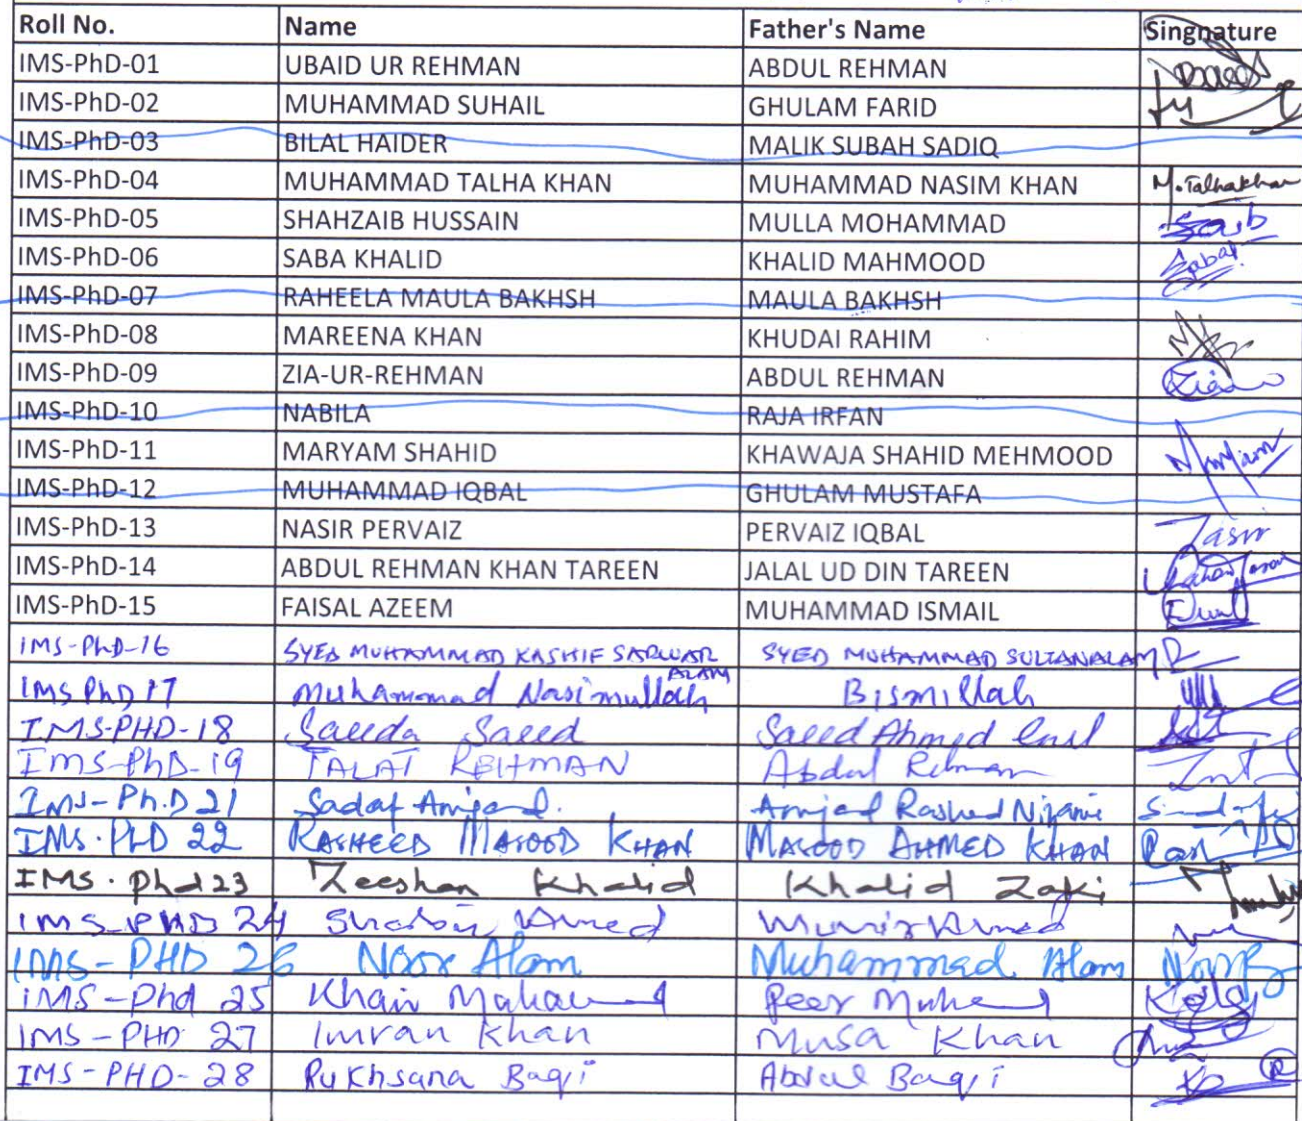 Roll No. Name Father's Name Singnature
IMS-PhD-01 UBAID UR REHMAN ABDUL REHMAN
IMS-PhD-02 MUHAMMAD SUHAIL GHULAM FARID
IMS-PhD-03 BILAL HAIDER MALIK SUBAH SADIQ
IMS-PhD-04 MUHAMMAD TALHA KHAN MUHAMMAD NASIM KHAN M.Talhakhan
IMS-PhD-05 SHAHZAIB HUSSAIN MULLA MOHAMMAD
IMS-PhD-06 SABA KHALID KHALID MAHMOOD
IMS-PhD-07 RAHEELA MAULA BAKHSH MAULA BAKHSH
IMS-PhD-08 MAREENA KHAN KHUDAI RAHIM
IMS-PhD-09 ZIA-UR-REHMAN ABDUL REHMAN
IMS-PhD-10 NABILA RAJA IRFAN
IMS-PhD-11 MARYAM SHAHID KHAWAJA SHAHID MEHMOOD Maryam
IMS-PhD-12 MUHAMMAD IQBAL GHULAM MUSTAFA
IMS-PhD-13 NASIR PERVAIZ PERVAIZ IQBAL
IMS-PhD-14 ABDUL REHMAN KHAN TAREEN JALAL UD DIN TAREEN
IMS-PhD-15 FAISAL AZEEM MUHAMMAD ISMAIL
IMS-PhD-16 SYED MUHAMMAD KASHIF SARWAR ALAM SYED MUHAMMAD SULTAN ALAM
IMS PhD 17 Muhammad Nasimullah Bismillah
IMS-PHD-18 Saeeda Saeed Saeed Ahmed
IMS-PhD-19 TALAT REHMAN Abdul Rehman
IMS-Ph.D 21 Sadaf Amjad. Amjad Rashed Nizami
IMS.PhD 22 RASHEED MASOOD KHAN MASOOD AHMED KHAN
IMS.Phd 23 Zeeshan Khalid Khalid Zaki
IMS-PHD 24 Ahmed Munir Ahmed
IMS-PHD 26 Noor Alam Muhammad Alam
IMS-Phd 25 Khair Peer
IMS-PHD 27 Imran Khan Musa Khan
IMS-PHD-28 Rukhsana Baqi Abdul Baqi